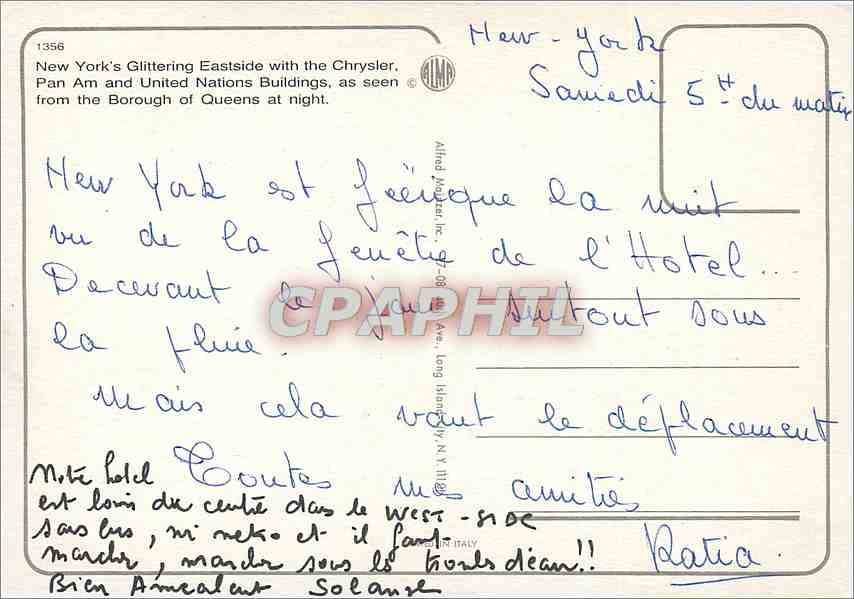 1356
New York's Glittering Eastside with the Chrysler,
Pan Am and United Nations Buildings, as seen
from the Borough of Queens at night.
© ALMA
New-York
Samedi 5H du matin
New York est féérique la nuit
vu de la fenêtre de l'Hotel...
Decevant le jour surtout sous
la pluie.
Mais cela vaut le déplacement
Toutes mes amitiés
Katia
Notre hotel
est loin du centre dans le WEST-SIDE
sans bus, ni metro et il faut
marcher, marcher sous les trombes d'eau!!
Bien Amicalement Solange
Alfred Mainzer, Inc., Ave., Long Island City, N.Y. 11101
IN ITALY
CPAPHIL